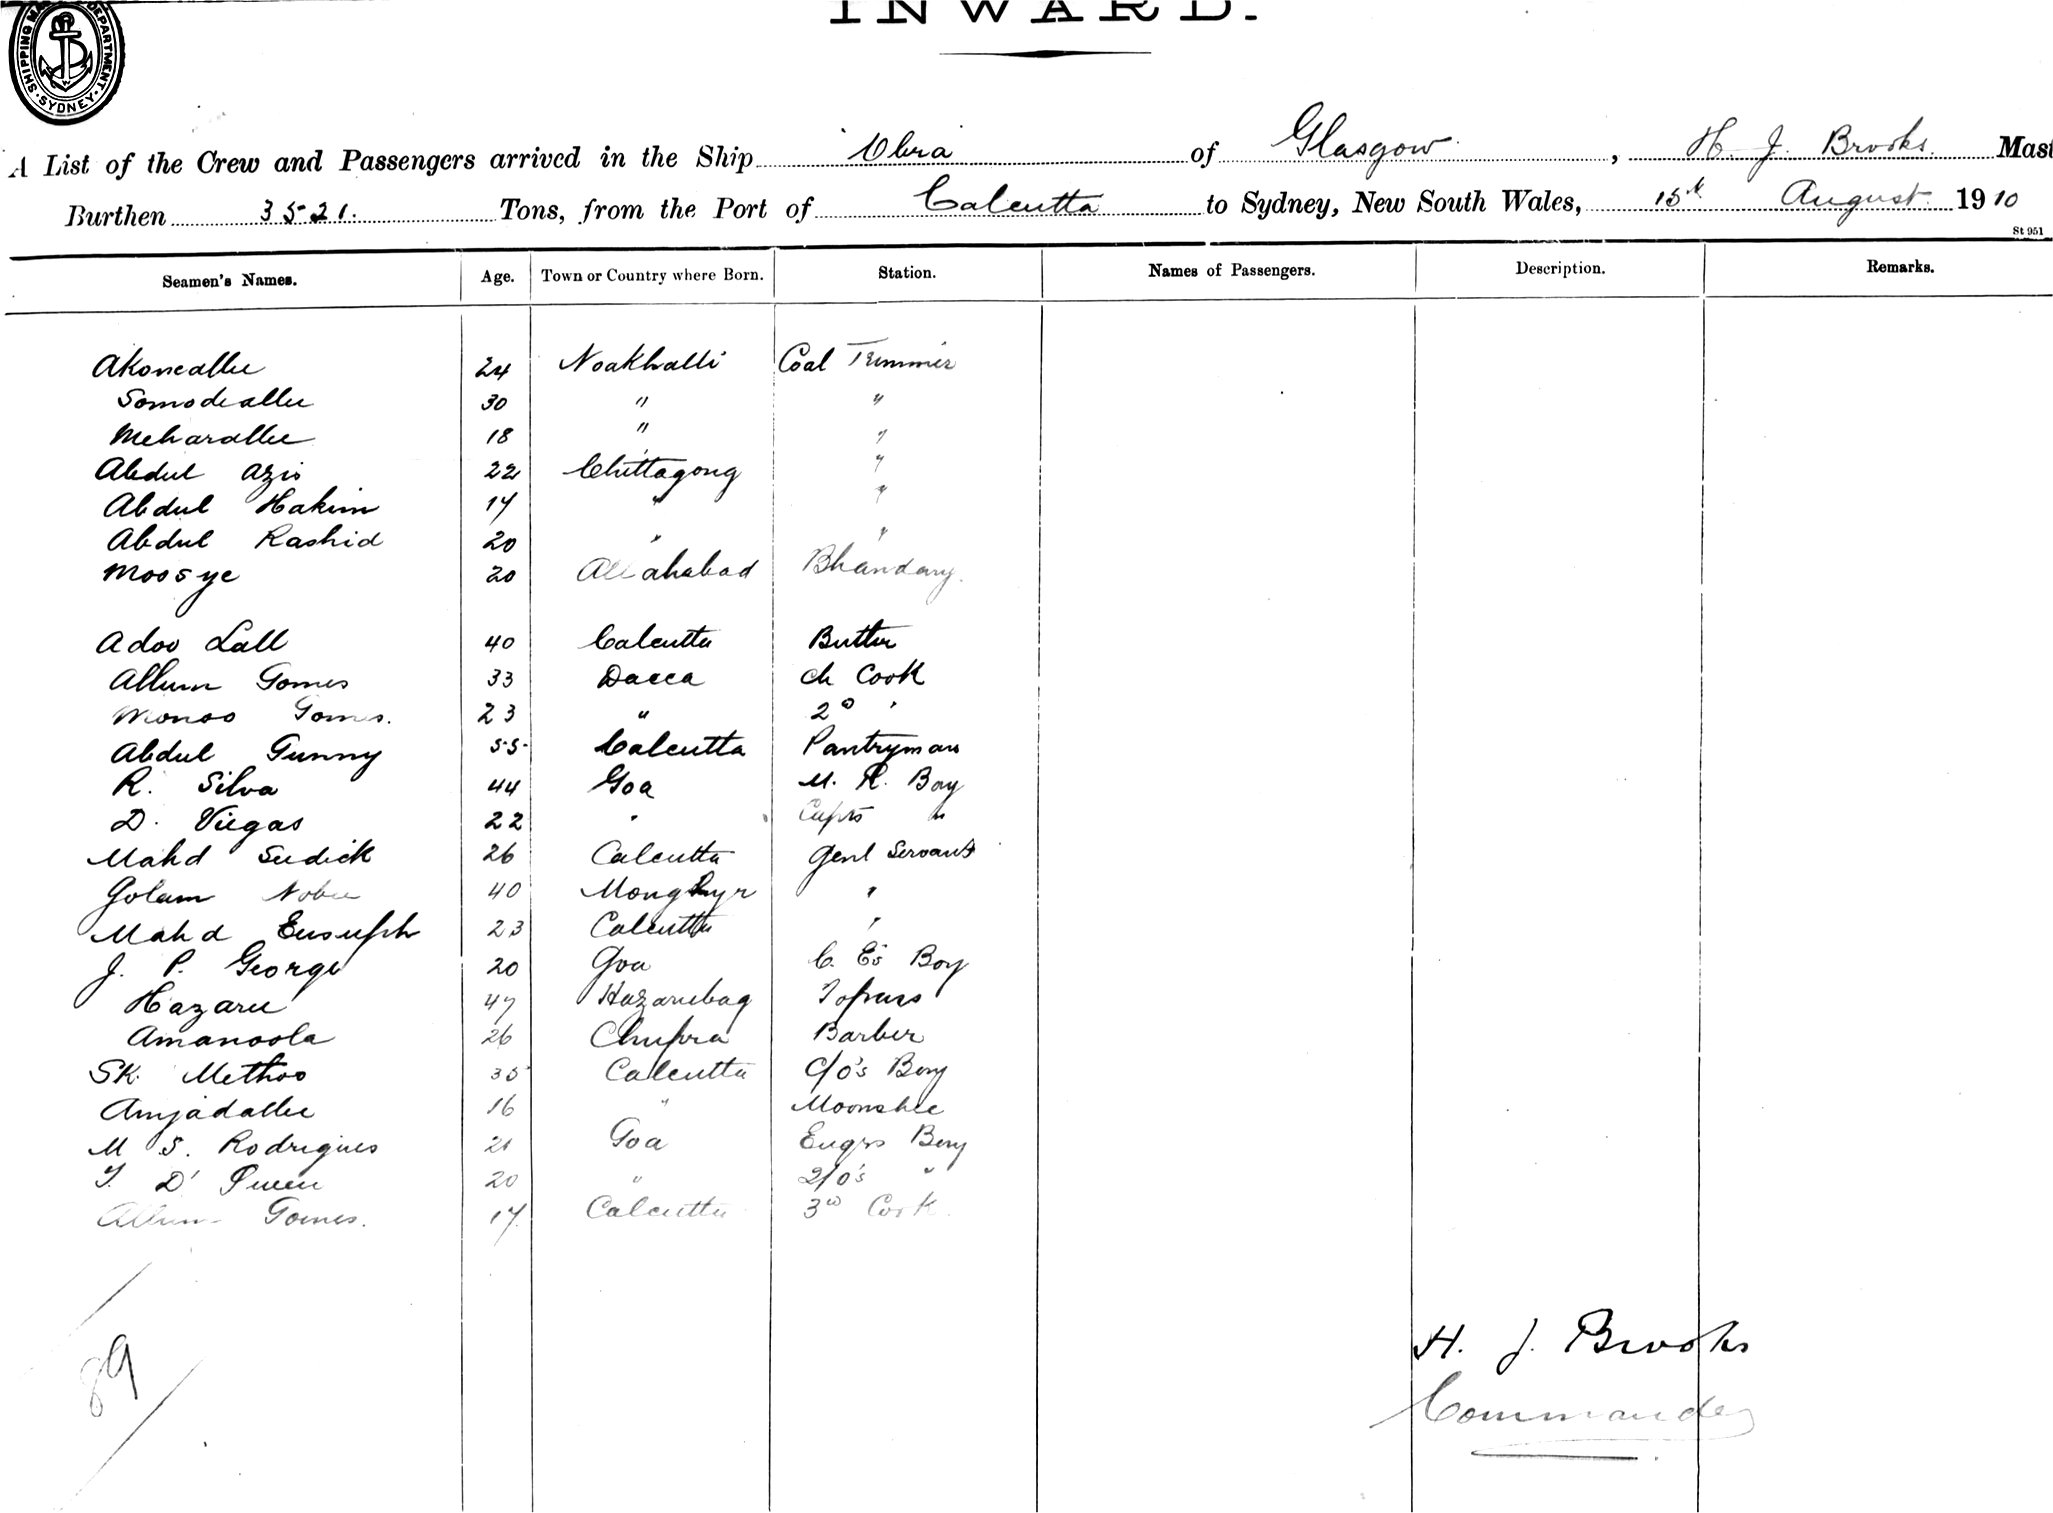 SHIPPING MA DEPARTMENT. SYDNEY.
INWARD.
A List of the Crew and Passengers arrived in the Ship Obra of Glasgow, H. J. Brooks Mast
Burthen 3521. Tons, from the Port of Calcutta to Sydney, New South Wales, 15th August 1910
St 951
Seamen's Names. Age. Town or Country where Born. Station. Names of Passengers. Description. Remarks.
Akoneallee 24 Noakhalli Coal Trimmer
Somodeallee 30 " "
Meharallee 18 " "
Abdul Azis 22 Chittagong "
Abdul Hakim 17 " "
Abdul Rashid 20 " "
Moosye 20 Allahabad Bhandary.
Adoo Lall 40 Calcutta Butler
Allum Gomes 33 Dacca Ch Cook
Monoo Gomes. 23 " 2D "
Abdul Gunny 55 Calcutta Pantryman
R. Silva 44 Goa M. R. Boy
D. Viegas 22 " Capts "
Mahd Sudick 26 Calcutta Genl Servant
Golam Nobee 40 Monghyr "
Mahd Eusuph 23 Calcutta "
J. P. George 20 Goa C. E's Boy
Hazaree 47 Hazareebag Topass
Amanoola 26 Chupra Barber
SK. Methoo 35 Calcutta C/O's Boy
Amjadallee 16 " Moonshee
M S. Rodrigues 21 Goa Engrs Boy
D' 20 " 2/O's "
Allum Gomes. 17 Calcutta 3rd Cook.
89
H. J. Brooks
Commander